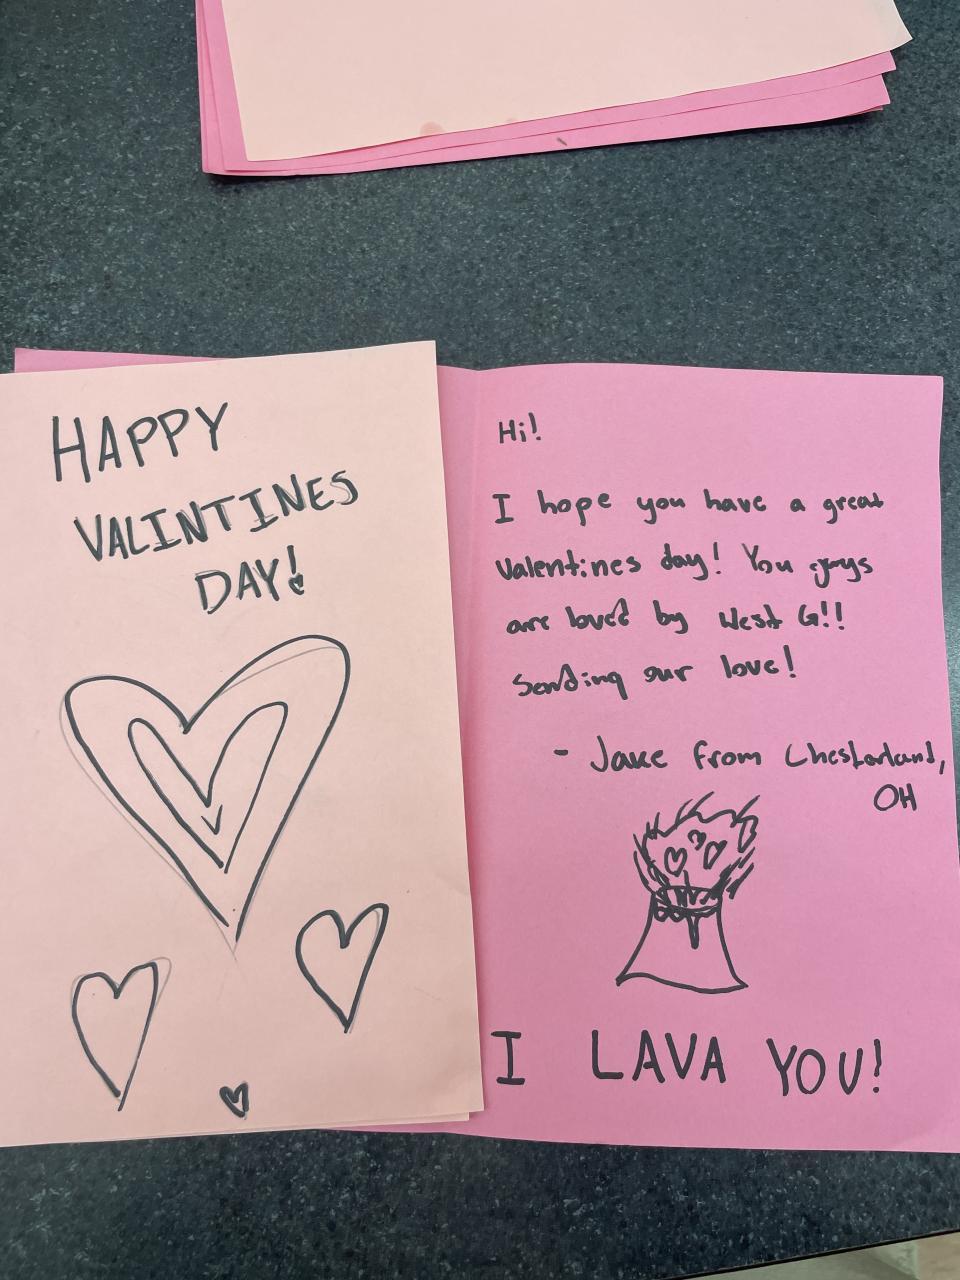 HAPPY
VALINTINES
DAY!
Hi!
I hope you have a great
Valentines day! You guys
are loved by West G!!
Sending our love!
- Jake from Chesterland,
OH
I LAVA YOU!